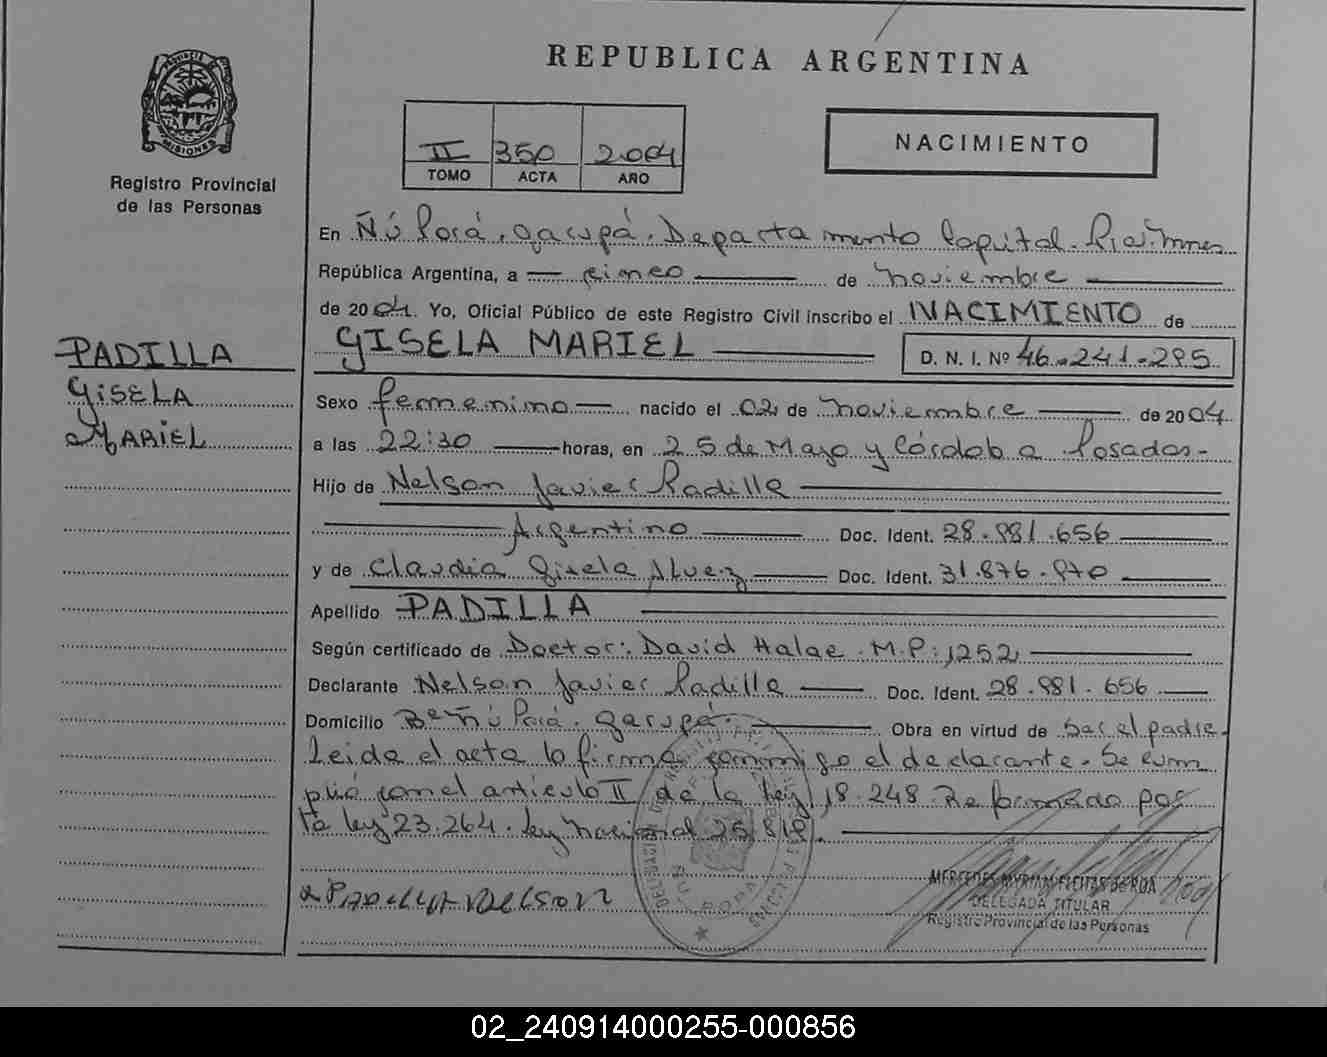 REPUBLICA ARGENTINA
PROVINCIA DE
MISIONES
Registro Provincial
de las Personas
II 350 2004
TOMO ACTA AÑO
NACIMIENTO
En Ñú Porá, Garupá. Departamento Capital. Mnes
República Argentina, a cinco de noviembre
de 2004. Yo, Oficial Público de este Registro Civil inscribo el NACIMIENTO de
GISELA MARIEL D. N. I. Nº 46.241.295
PADILLA
GISELA
MARIEL
Sexo femenino nacido el 02 de noviembre de 2004
a las 22:30 horas, en 25 de Mayo y Córdoba Posadas-
Hijo de Nelson Javier Padilla
Argentino Doc. Ident. 28.981.656
y de Claudia Gisela Alvez Doc. Ident. 31.876.970
Apellido PADILLA
Según certificado de Doctor: David Halac. M.P: 1252
Declarante Nelson Javier Padilla Doc. Ident. 28.981.656
Domicilio Bº Ñú Porá. Garupá. Obra en virtud de Ser el padre.
Leida el acta la firma conmigo el declarante. Se cum
plió con el artículo II de la Ley 18.248. Reformada por
la ley 23.264. Ley Nacional 25.819.
PADILLA NELSON
MERCEDES MYRIAM FLEITAS de ROA
DELEGADA TITULAR
Registro Provincial de las Personas
DELEGACION
ÑU PORA
02_240914000255-000856